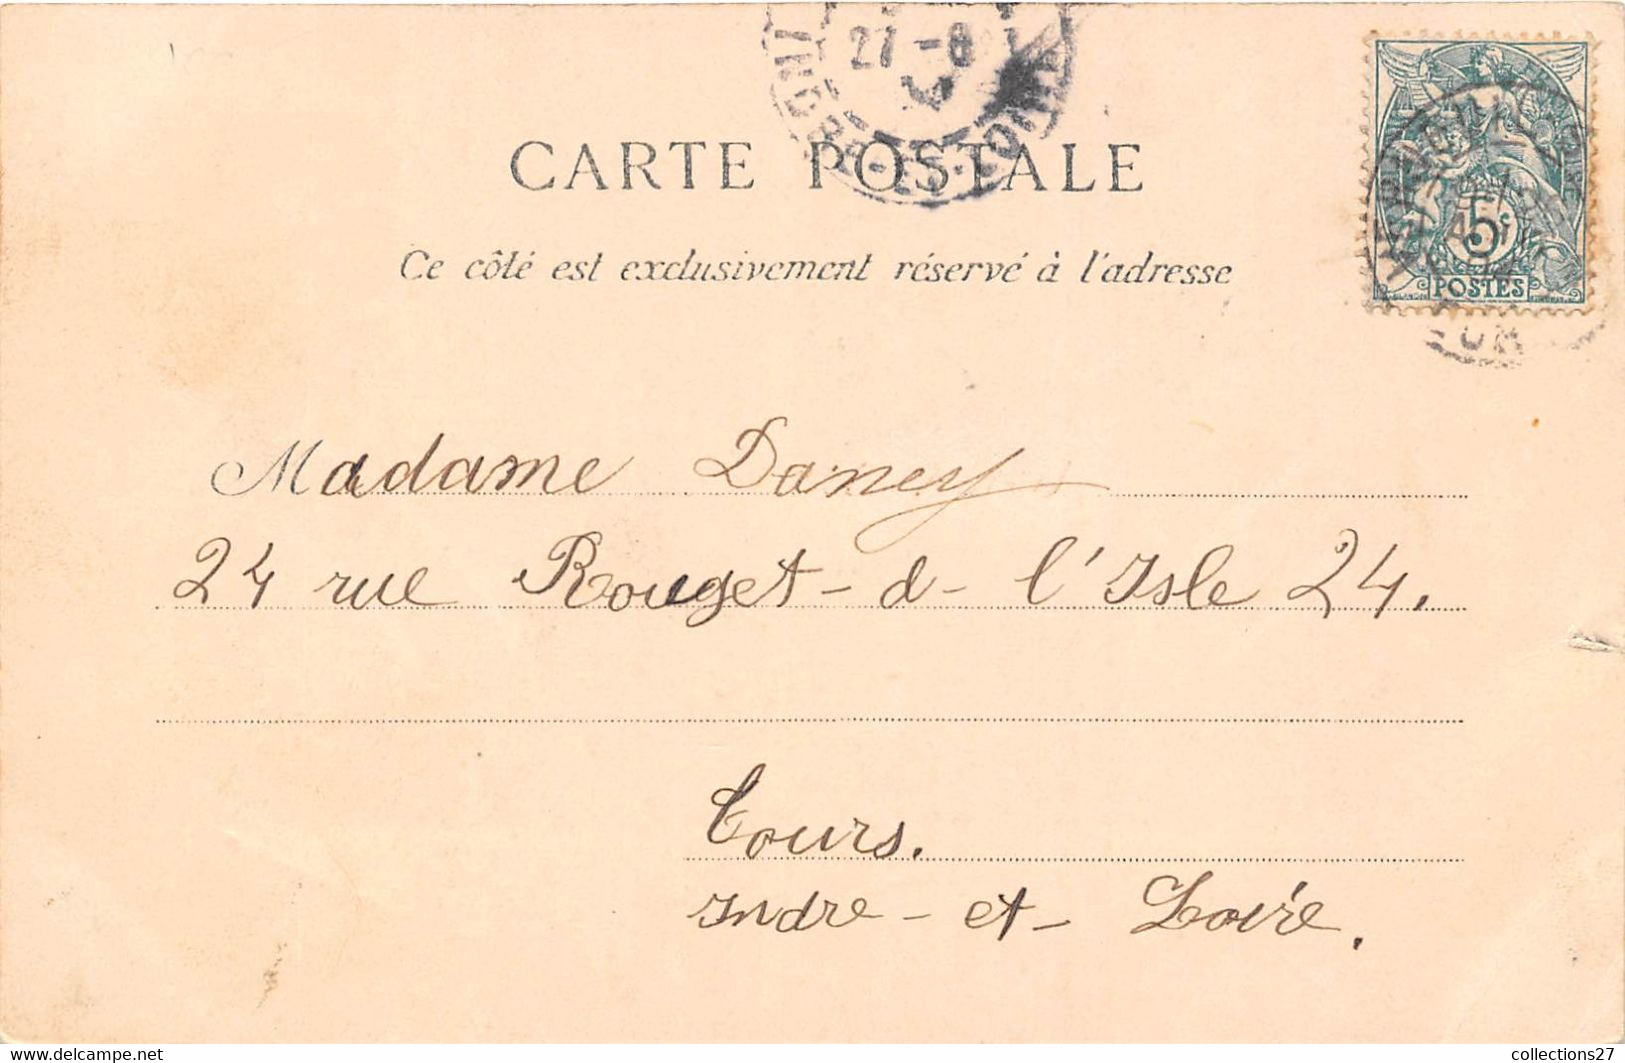 27 -8
INDRE-ET-LOIRE
CARTE POSTALE
Ce côté est exclusivement réservé à l'adresse
5c
POSTES
Madame Daney
24 rue Rouget-d-l'Isle 24.
Tours.
Indre-et-Loire.
https://www.delcampe.net
collections27